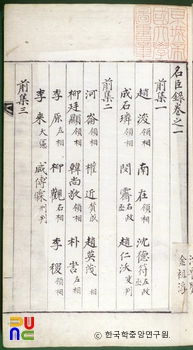 名臣錄卷之一
前集一
趙浚領相 南在領相 沈德符
成石璘領相 閔霽 趙仁沃
前集二
河崙領相 權近贊成 趙英茂
柳廷顯領相 韓尙敬領相 朴訔左相
李原左相 柳觀右相 李稷領相
李來大憲 咸傅霖刑判
前集三
ⓒ 한국학중앙연구원